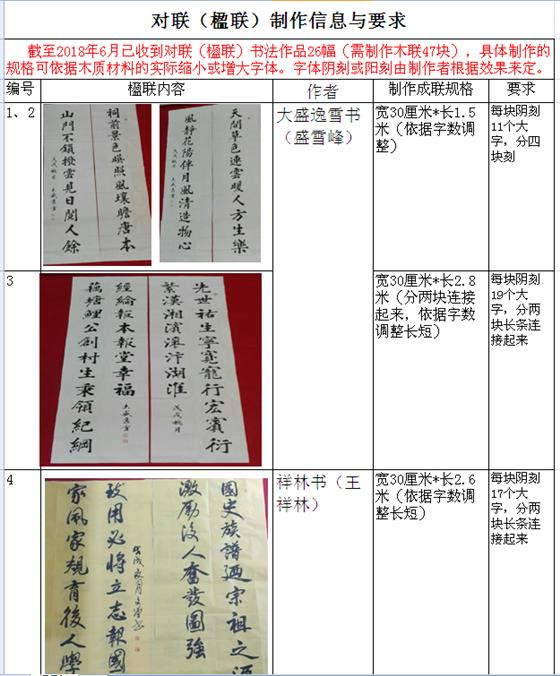 对联（楹联）制作信息与要求
截至2018年6月己收到对联（楹联）书法作品26幅（需制作木联47块），具体制作的
规格可依据木质材料的实际缩小或增大字体。字体阴刻或阳刻由制作者根据效果来定。
编号 楹联内容 作者 制作成联规格 要求
1、2
祠前景色暎照風壤瞻唐本
山門不鎖撥雲見日閱人餘
天開草色連雲暖人方生樂
風静花陽伴月風清造物心
大盛逸雪书
（盛雪峰）
宽30厘米*长1.5
米（依据字数
调整）
每块阴刻
11个大
字，分四
块刻
3
先世祜生寧寬寵行宏賓衍
繁漢湘濱滾汴湖淮
戊戌桃月
經綸報本報堂幸福
藕塘鯉公創村生秉領紀綱
宽30厘米*长2.8
米（分两块连接
起来，依据字数
调整长短）
每块阴刻
19个大
字，分两
块长条连
接起来
4
國史族譜廼宗祖之源
激勵後人奮發圖強
致用必將立志報國
家風家規育後人學
祥林书（王
祥林）
宽30厘米*长2.6
米（依据字数调
整长短）
每块阴刻
17个大
字，分两
块长条连
接起来